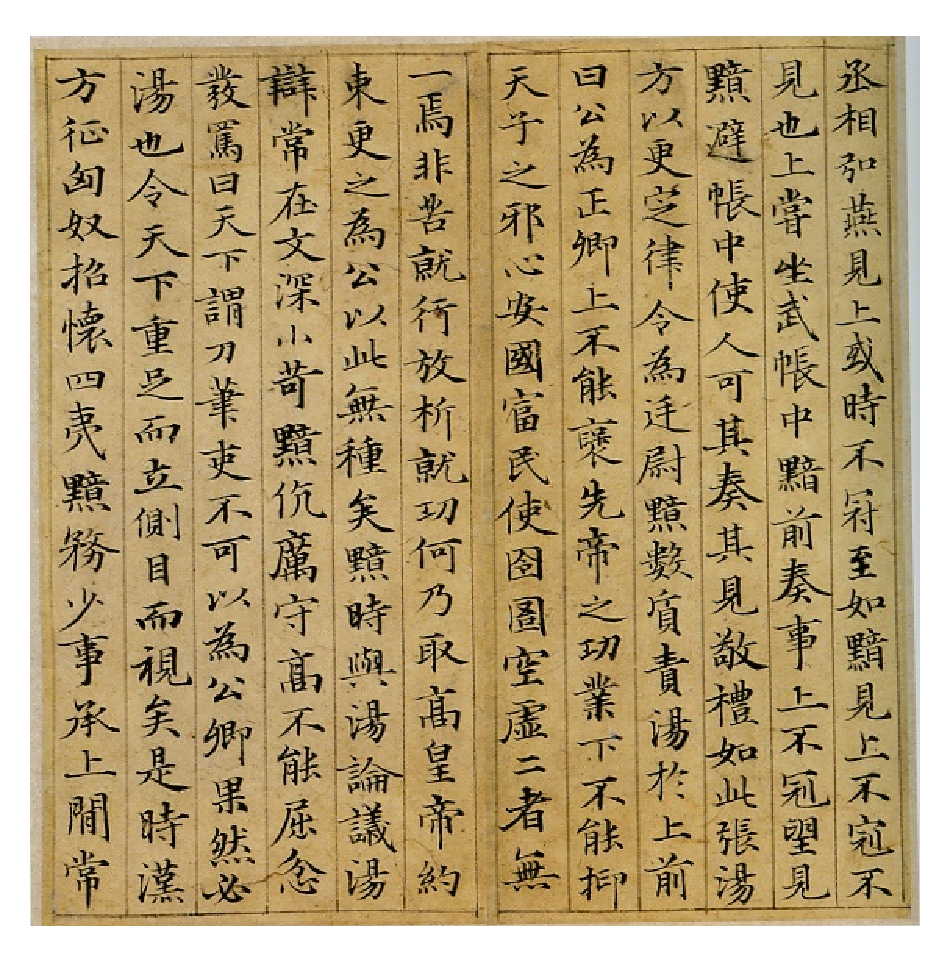 丞相弘燕見上或時不冠至如黯見上不冠不
見也上嘗坐武帳中黯前奏事上不冠望見
黯避帳中使人可其奏其見敬禮如此張湯
方以更定律令為廷尉黯數質責湯於上前
曰公為正卿上不能襃先帝之功業下不能抑
天子之邪心安國富民使囹圄空虛二者無
一焉非苦就行放析就功何乃取高皇帝約
束更之為公以此無種矣黯時與湯論議湯
辯常在文深小苛黯伉厲守高不能屈忿
發罵曰天下謂刀筆吏不可以為公卿果然必
湯也令天下重足而立側目而視矣是時漢
方征匈奴招懷四夷黯務少事承上閒常